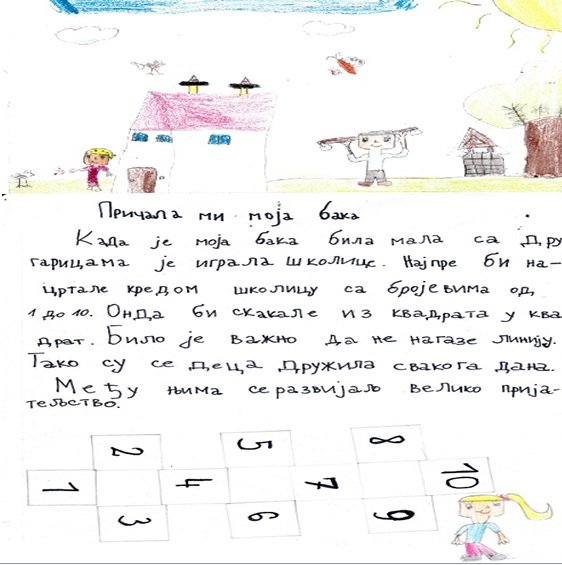 Причала ми моја бака
Када је моја бака била мала са дру
гарицама је играла школице. Најпре би на-
цртале кредом школицу са бројевима од
1 до 10. Онда би скакале из квадрата у ква
драт. Било је важно да не нагазе линију.
Тако су се деца дружила свакога дана.
Међу њима се развијаљо велико прија-
тељство.
2 5 8
1 4 7 10
3 6 9